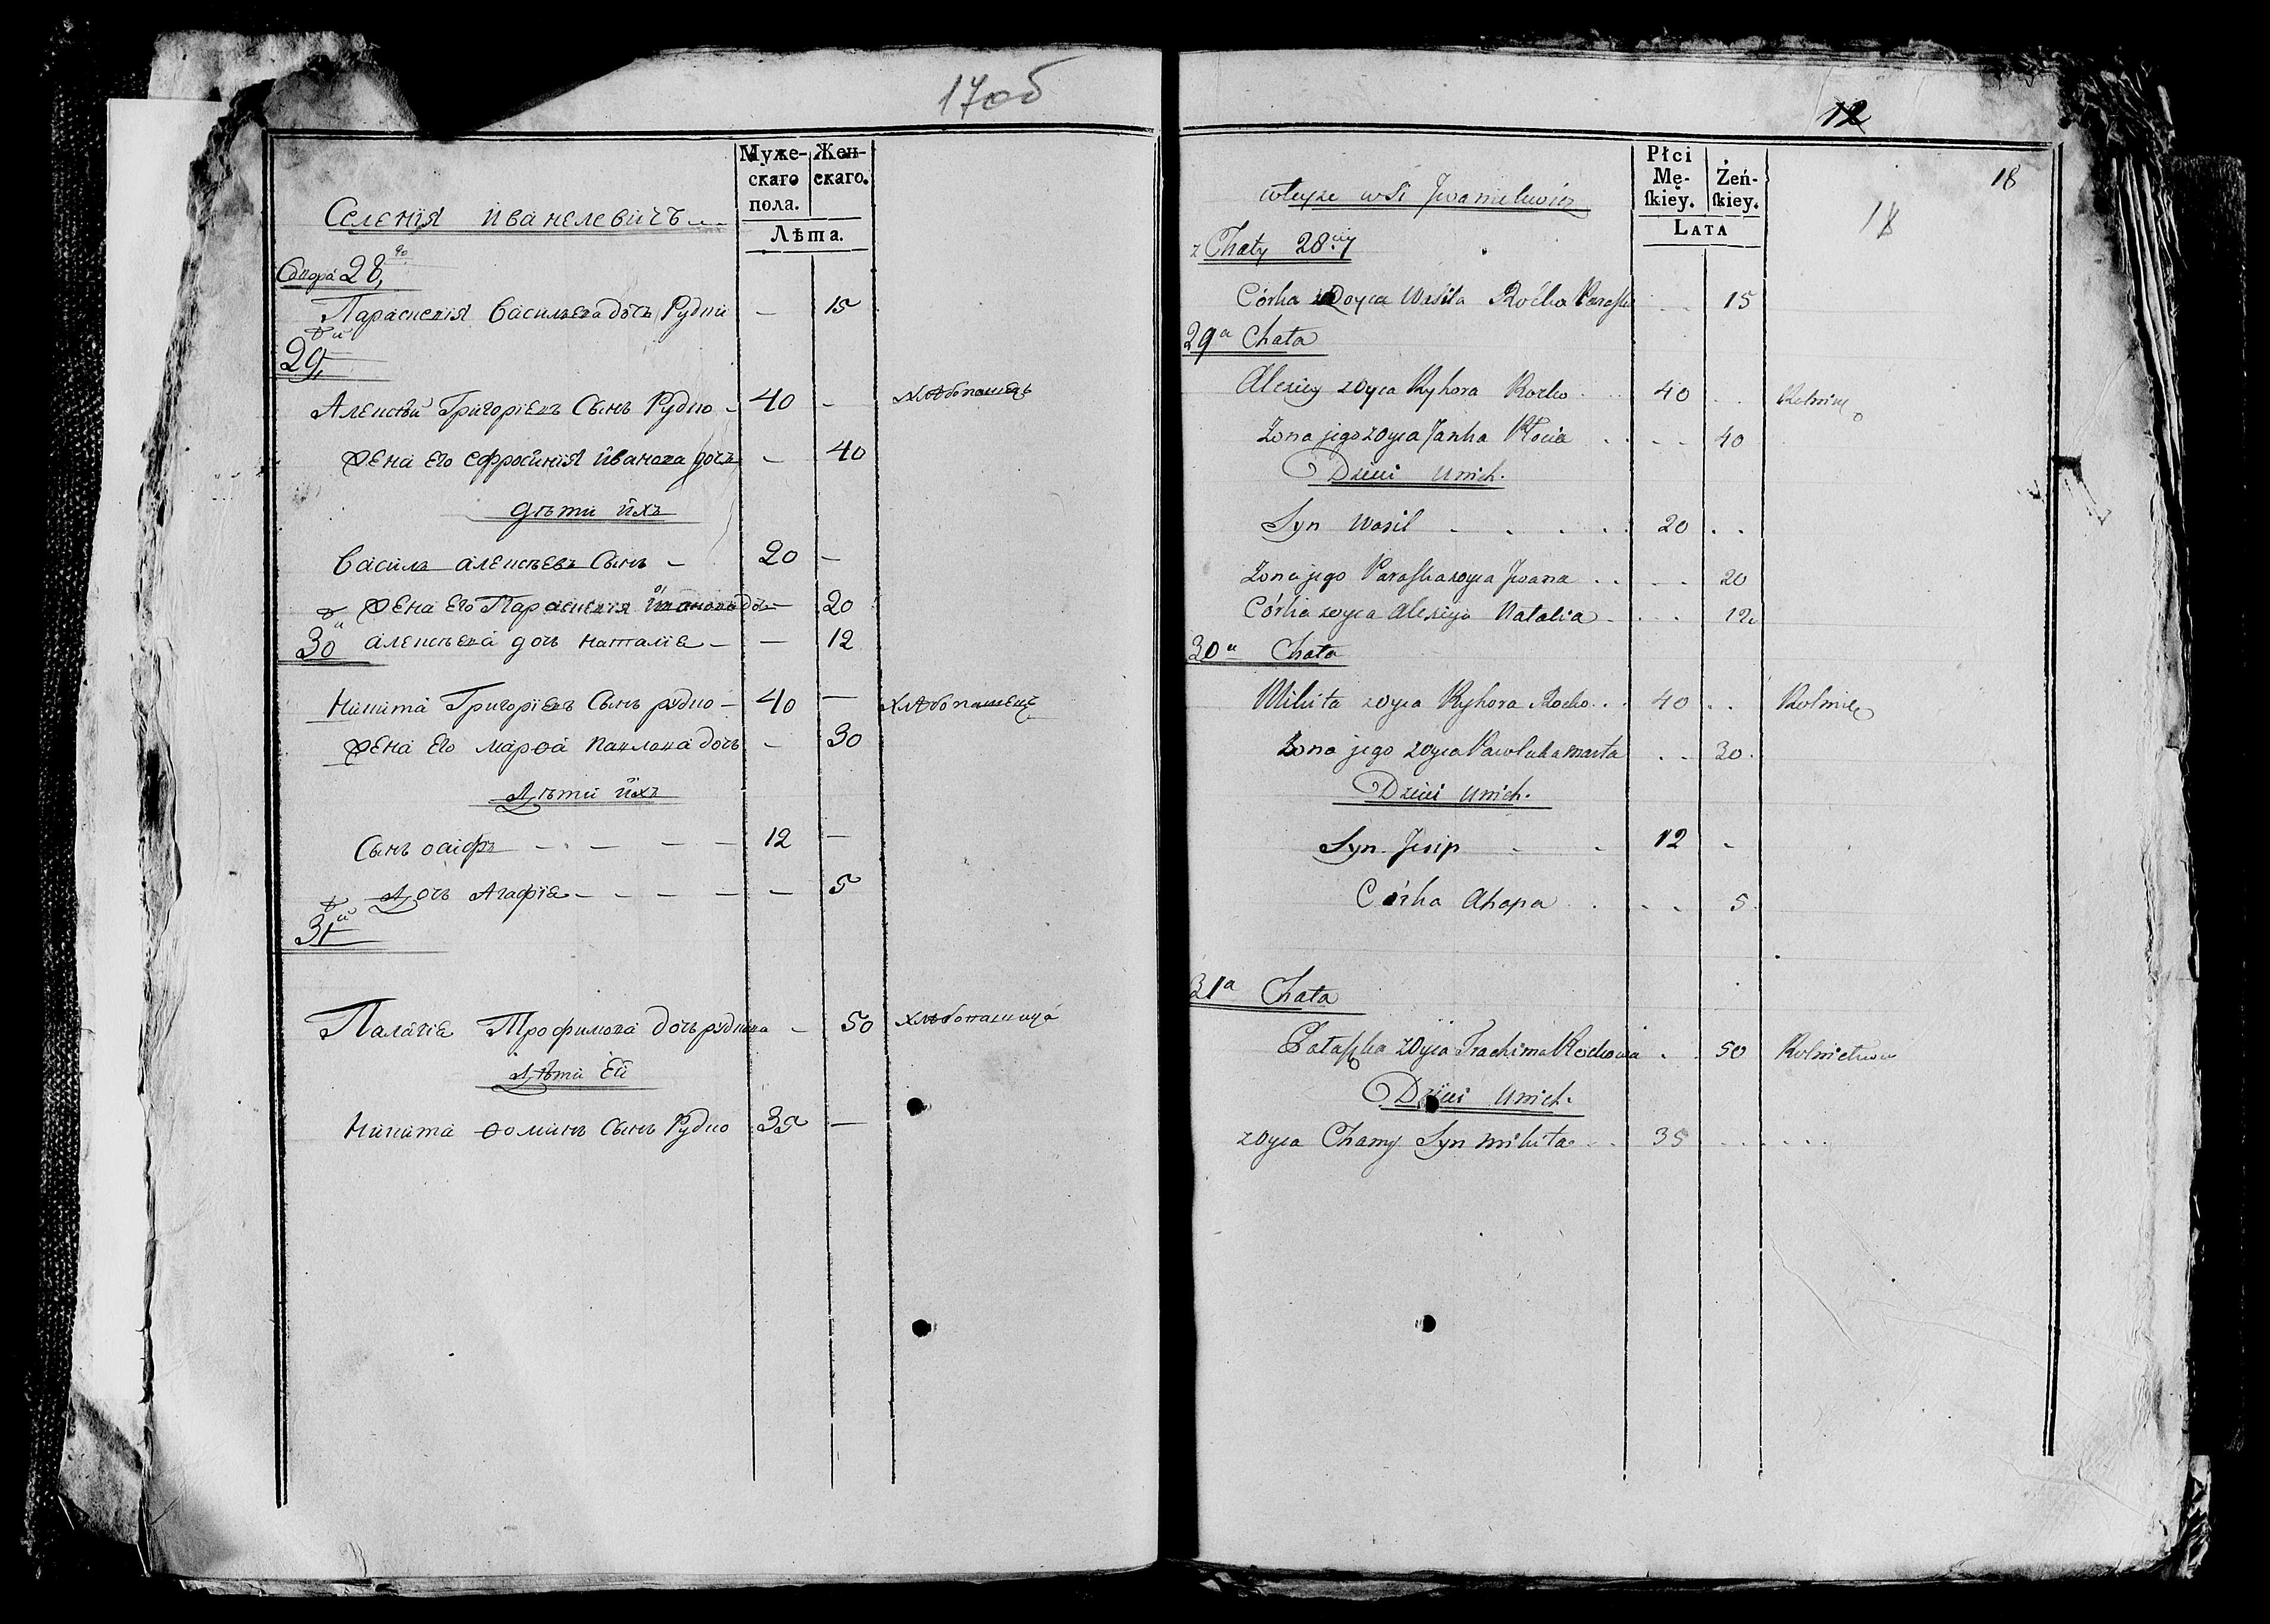 17об
Муже- Жен-
скаго скаго.
пола.
Лѣта.
Селенія Иванелевичъ
28
Параскевія Васильева дочь Рудни — 15
29
Алексѣй Григоріевъ Сынъ Рудко — 40 — хлѣбопашецъ
Жена Его Ефросинія Иванова дочь — 40
дѣти ихъ
Василь алексѣевъ Сынъ — 20 —
Жена Его Параскевія — 20
30 алексѣева дочь наталіе — — 12
Никита Григоріевъ Сынъ рудко — 40 — хлѣбопашецъ
Жена Его марѳа павлова дочь — 30
Дѣти ихъ
Сынъ осифъ — — — — 12 —
Дочь Агафіе — — — — — 5
31
Палагіе Трофимова дочь — 50
Дѣти Ей
Никита Ѳоминъ Сынъ Рудко 35 —
12
18
18
Płci
Mę- Żeń-
skiey. skiey.
LATA
wteyże wsi Jwanilewicz
z Chaty 28iey
Córka Oyca Wasila 15
29a Chata
Alexiey zoyca Ryhora 40 Rolnik
Zona jego zoyca Janka 40
Dzieci Unich.
Syn Wasil 20
Zona jego Paraska zoyca Jwana 20
Córka zoyca Alexieja Natalia 12
30a Chata
Mikita zoyca Ryhora 40 Rolnik
Zona jego zoyca Pawluka Marta 30
Dzieci Unich.
Syn Jesip 12
Córka Ahapa 5
31a Chata
zoyca Trachima 50
Dzieci Unich.
zoyca Chamy Syn Mikita 35